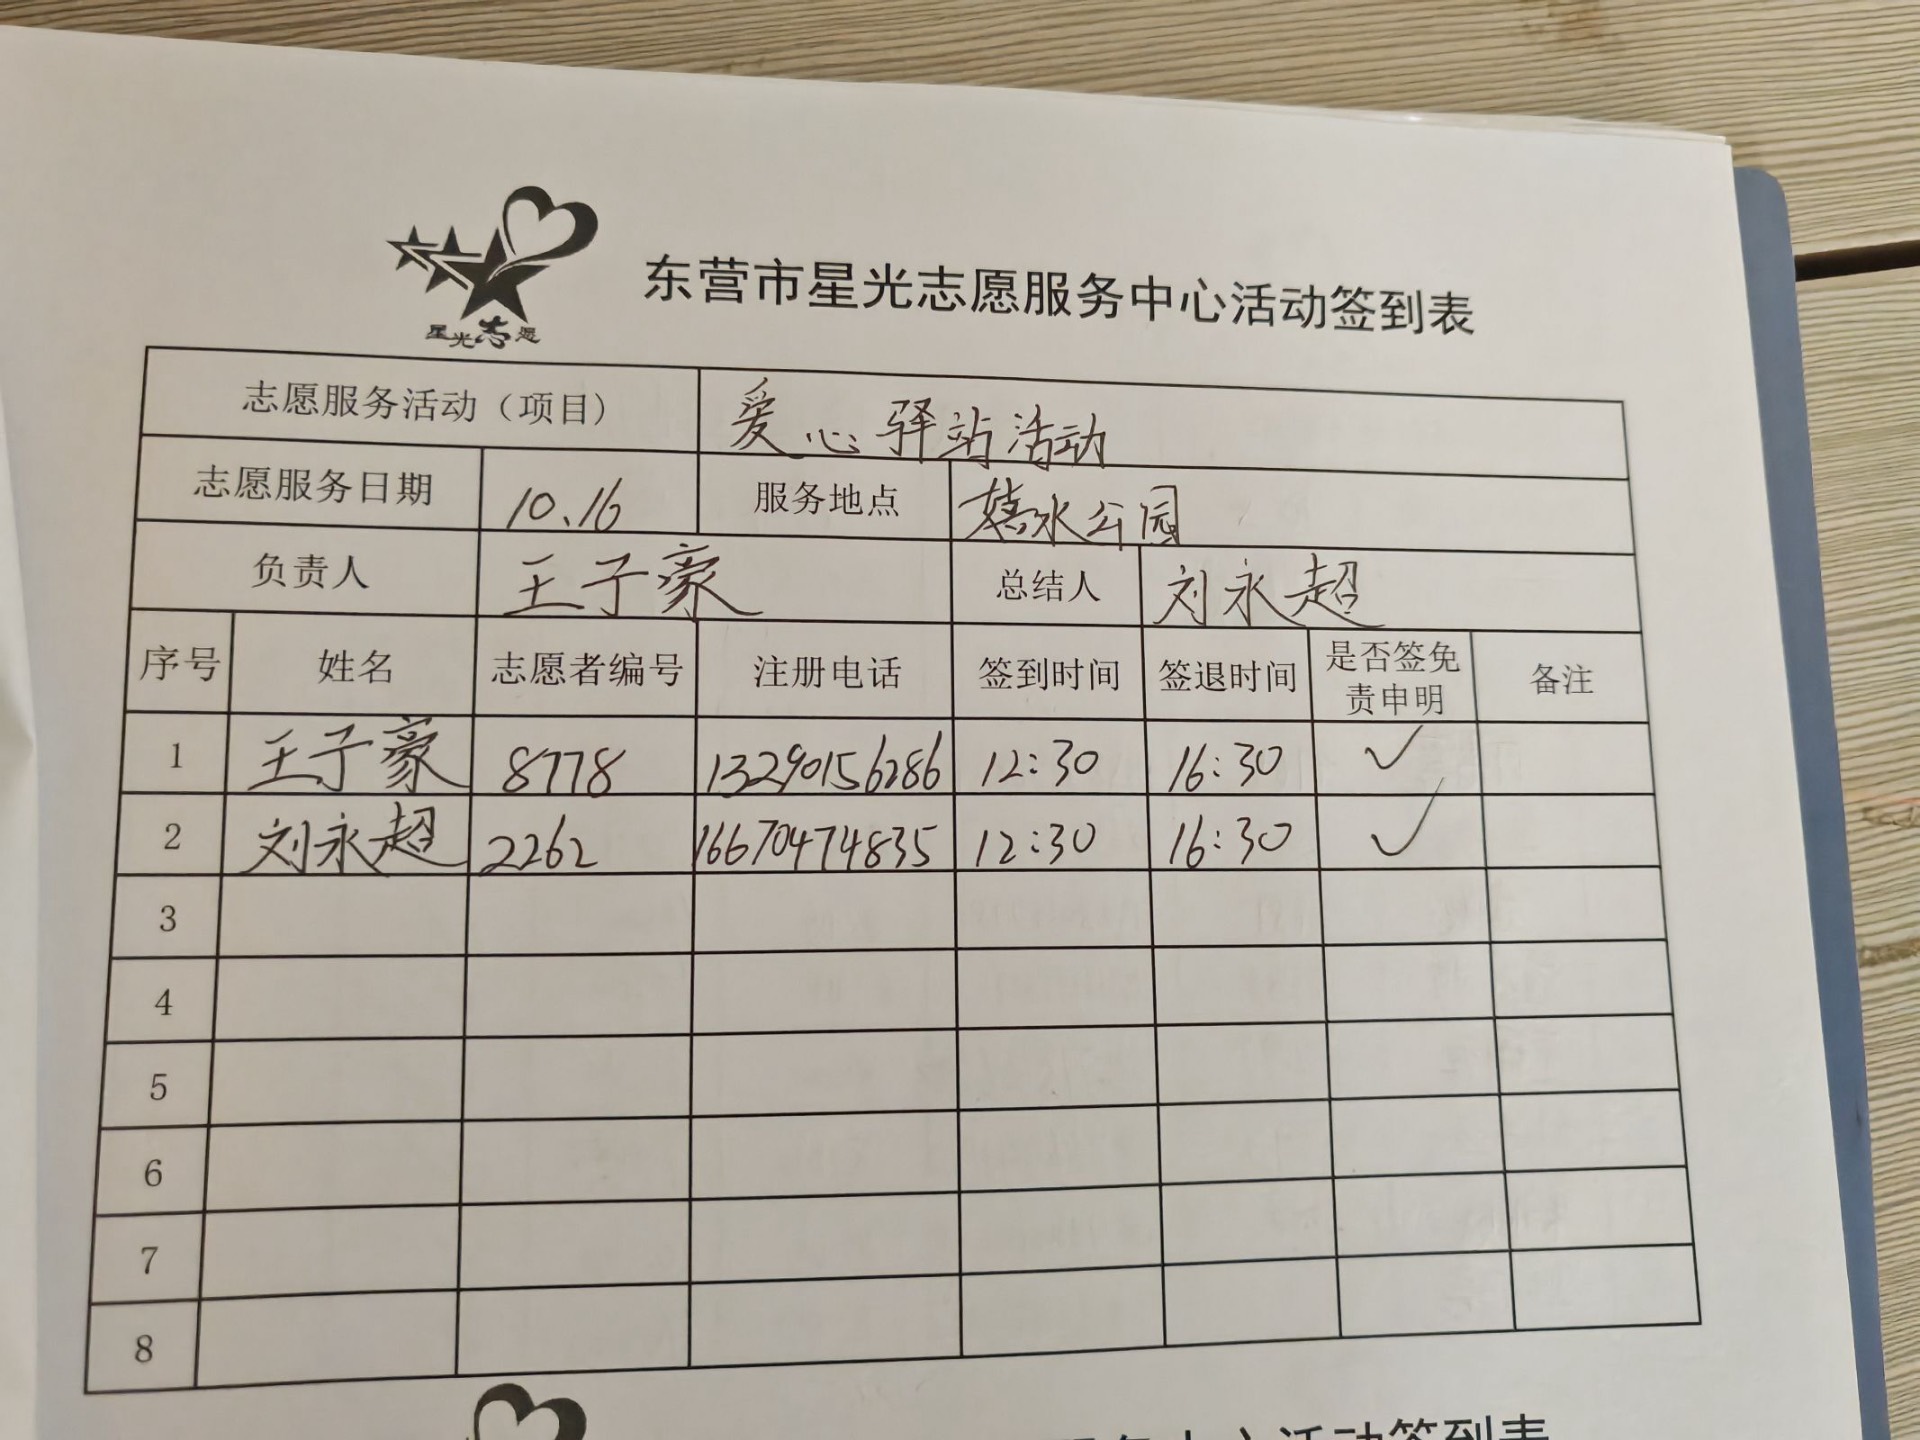 星光志愿
东营市星光志愿服务中心活动签到表
志愿服务活动（项目） 爱心驿站活动
志愿服务日期 10.16 服务地点 嬉水公园
负责人 王子豪 总结人 刘永超
序号 姓名 志愿者编号 注册电话 签到时间 签退时间 是否签免责申明 备注
1 王子豪 8778 13290156286 12:30 16:30 ✓
2 刘永超 2262 16670474835 12:30 16:30 ✓
3
4
5
6
7
8
服务中心活动签到表